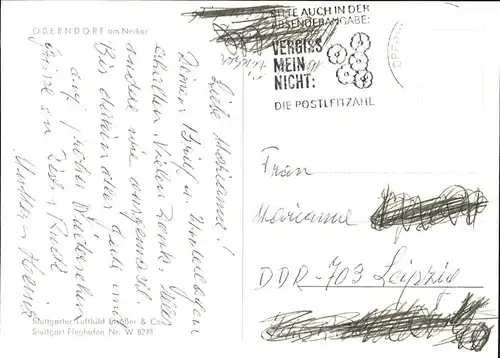 OBERNDORF am Neckar
BITTE AUCH IN DER
ABSENDERANGABE:
VERGISS
MEIN
NICHT:
DIE POSTLEITZAHL
Liebe Marianne!
Deinen Brief u. Unterlagen
erhalten. Vielen Dank. Alles
andere wie ausgemacht.
Bis dahin alles gute und
auf frohes Wiedersehen
Grüße an Dich u. Rudi
Mutter u. Heinz
Frau
Marianne
DDR-703 Leipzig
Stuttgarter Luftbild Elsäßer & Co.,
Stuttgart Flughafen Nr. W 8248